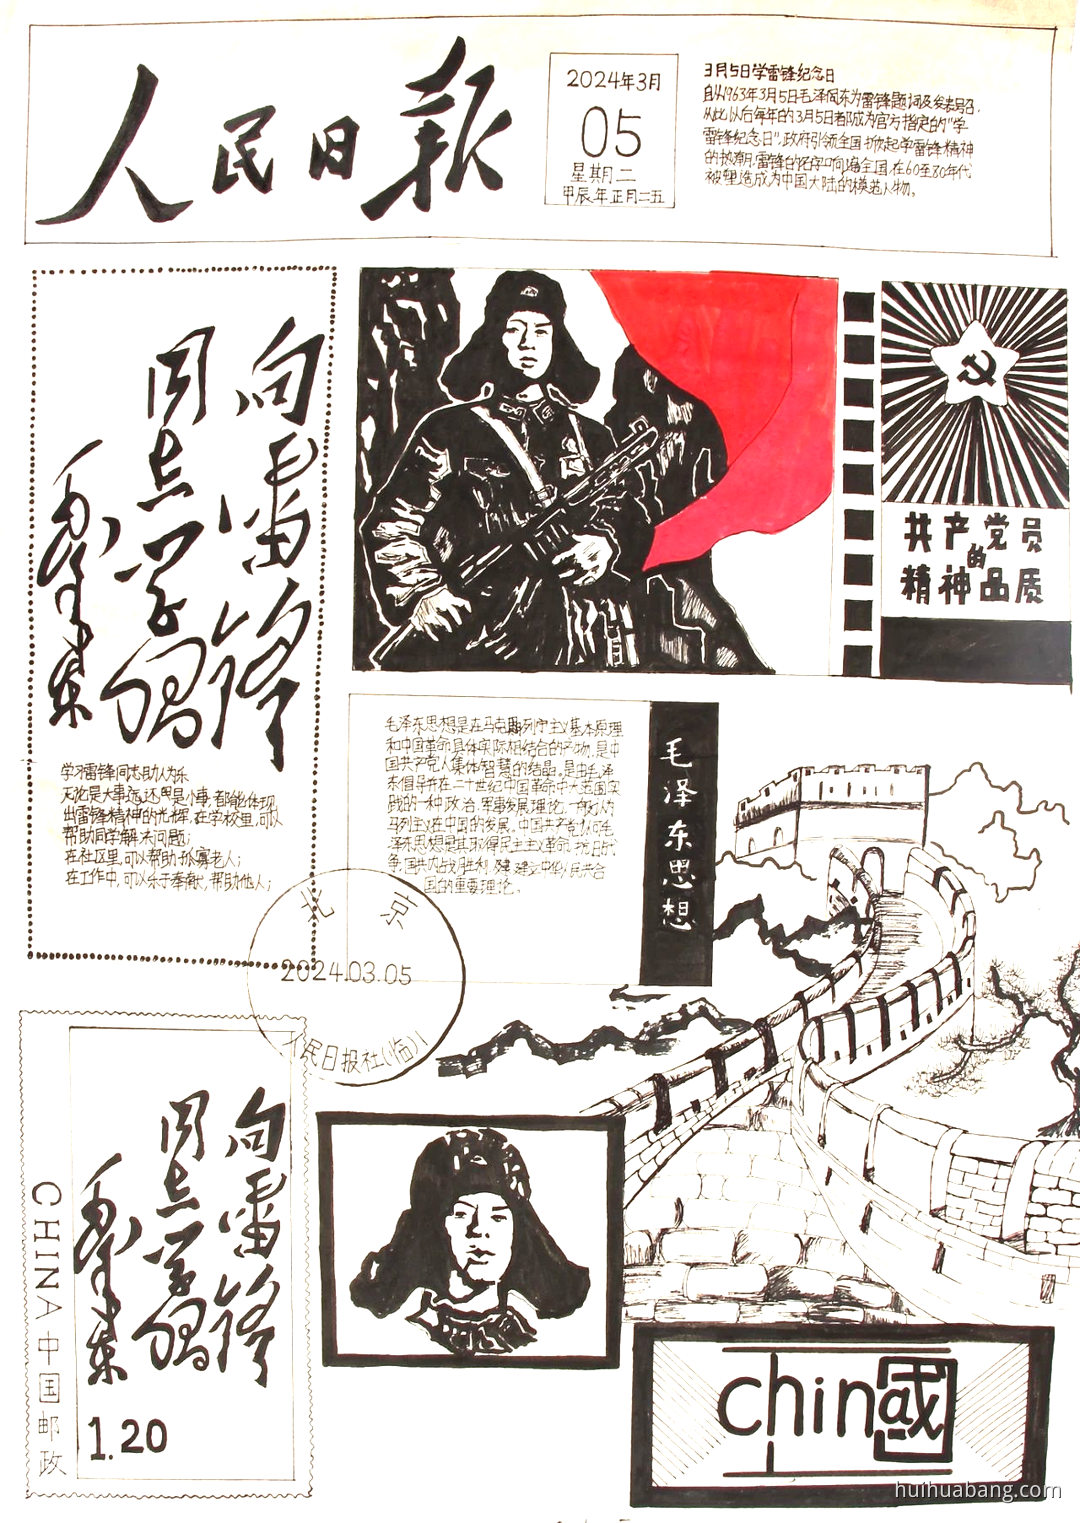 人民日报
2024年3月
05
星期二
甲辰年正月二五
3月5日学雷锋纪念日
自从1963年3月5日毛泽东为雷锋题词及发表号召,
从此以后每年的3月5日都成为官方指定的"学
雷锋纪念日",政府引领全国掀起学雷锋精神
的热潮,雷锋的名字响遍全国,在60至80年代
被塑造成为中国大陆的模范人物。
向雷锋
同志学习
毛泽东
学习雷锋同志助人为乐
无论是大事还是小事,都能体现
出雷锋精神的光辉,在学校里,可以
帮助同学解决问题;
在社区里,可以帮助孤寡老人;
在工作中,可以乐于奉献,帮助他人;
共产党员
的
精神品质
毛泽东思想是在马克思列宁主义基本原理
和中国革命具体实际相结合的产物,是中
国共产党人集体智慧的结晶。是由毛泽
东倡导并在二十世纪中国革命中大范围实
践的一种政治、军事发展理论,一般认为
马列主义在中国的发展。中国共产党认为毛
泽东思想是其取得民主主义革命、抗日战
争、国共内战胜利、建立中华人民共和
国的重要理论。
毛泽东思想
北京
2024.03.05
人民日报社(临)1
向雷锋
同志学习
毛泽东
1.20
CHINA中国邮政
china國
huihuabang.com